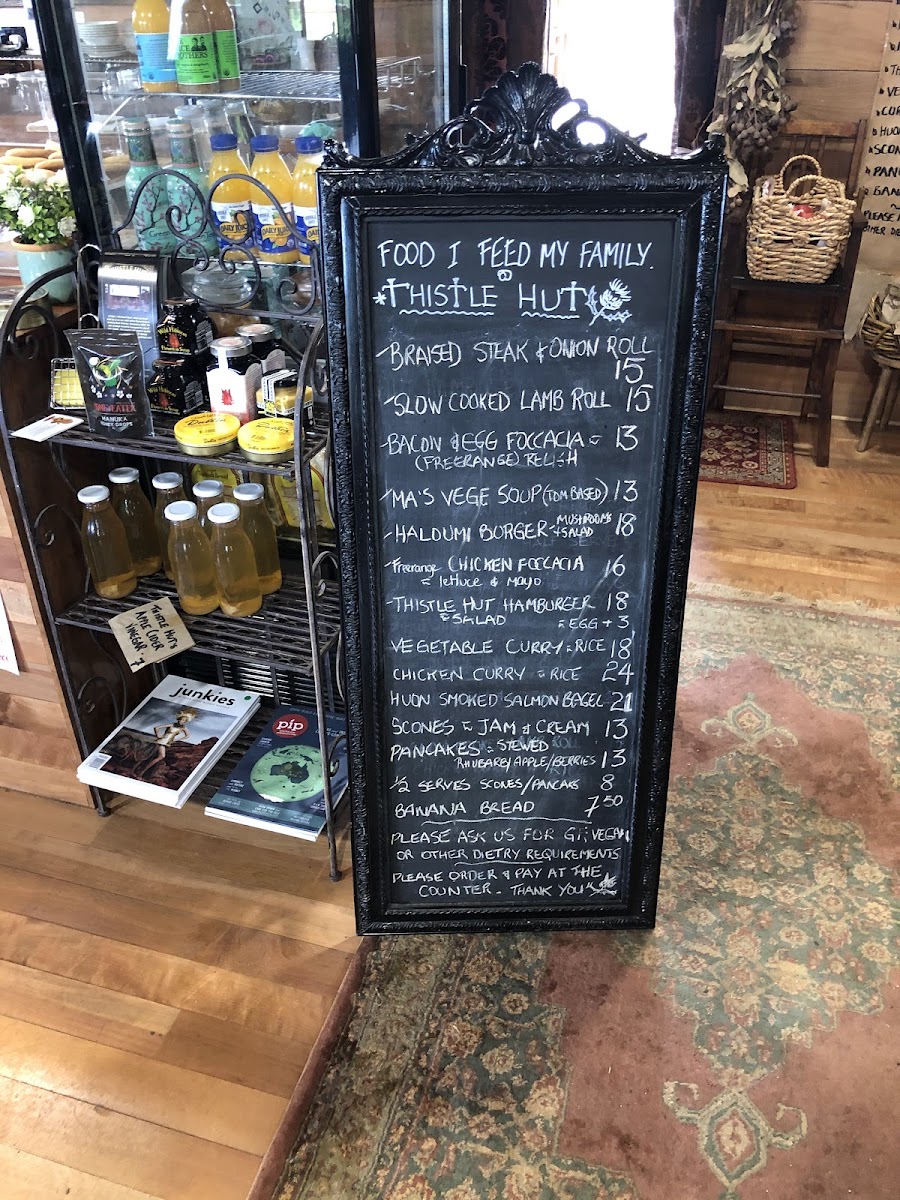 FOOD I FEED MY FAMILY.
*THISTLE HUT
BRAISED STEAK & ONION ROLL
15
SLOW COOKED LAMB ROLL 15
BACON & EGG FOCCACIA 13
(FREERANGE) RELISH
MA'S VEGE SOUP (TOM BASED) 13
HALOUMI BURGER MUSHROOMS 18
+ SALAD
Freerange CHICKEN FOCCACIA 16
lettuce & mayo
THISTLE HUT HAMBURGER 18
SALAD EGG + 3
VEGETABLE CURRY RICE 18
CHICKEN CURRY RICE 24
HUON SMOKED SALMON BAGEL 21
SCONES JAM & CREAM 13
PANCAKES STEWED
RHUBARB/APPLE/BERRIES 13
1/2 SERVES SCONES/PANCAKE 8
BANANA BREAD 7.50
PLEASE ASK US FOR GF, VEGAN
OR OTHER DIETRY REQUIREMENTS
PLEASE ORDER & PAY AT THE
COUNTER - THANK YOU
DAILY JUICE
DAILY JUICE
Wild Hibiscus
MANUKA
HONEY DROPS
THISTLE HUT'S
APPLE CIDER
VINEGAR - 7
junkies
pip